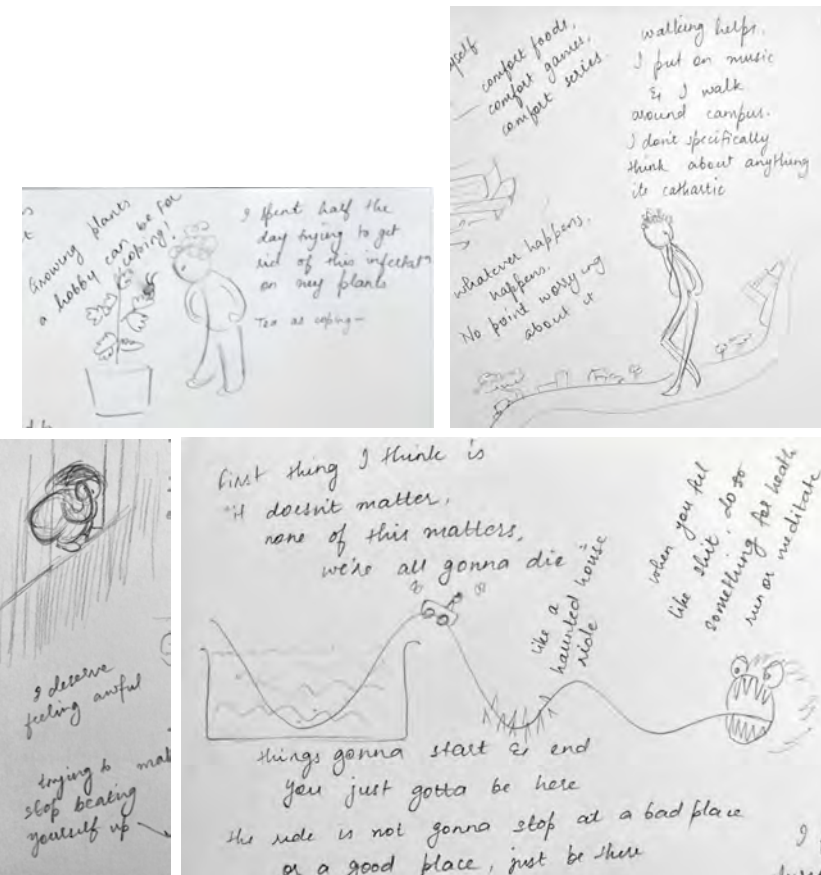 Growing plants
a hobby can be for
coping!
I spent half the
day trying to get
rid of this infectatn
on my plants
Tea as coping-
comfort foods,
comfort games,
comfort series.
walking helps.
I put on music
& I walk
around campus.
I don't specifically
think about anything
its cathartic
whatever happens,
happens.
No point worrying
about it
I deserve
feeling awful
trying to
stop beating
yourself up
first thing I think is
"it doesn't matter,
none of this matters,
we're all gonna die
like a
haunted house
ride
when you feel
like shit, do so
something for health
run or meditate
things gonna start & end
you just gotta be here
the ride is not gonna stop at a bad place
or a good place, just be there
I